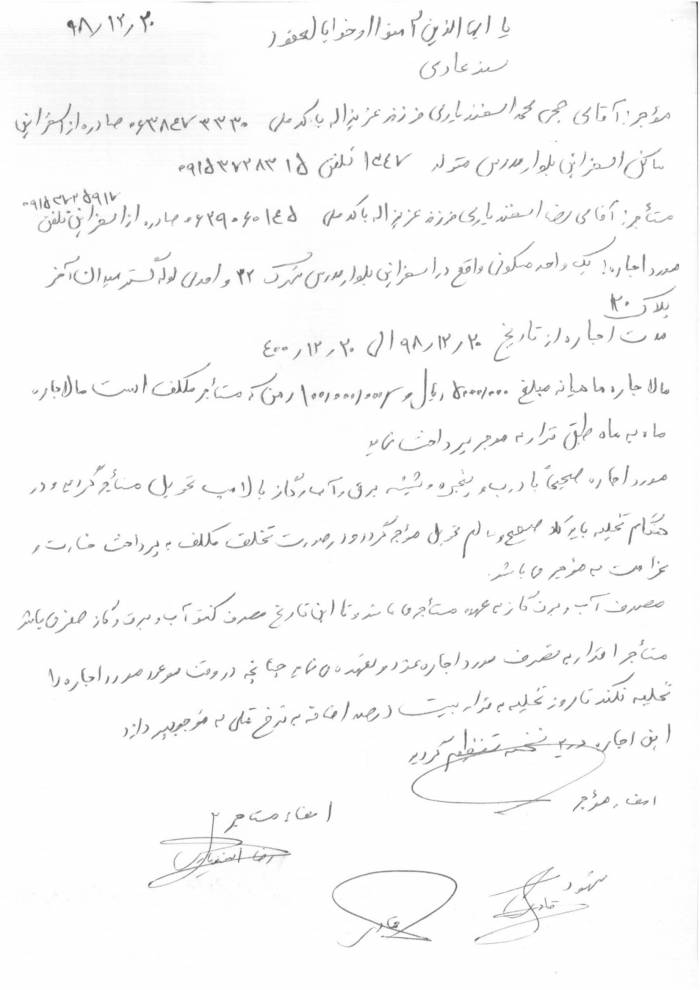 ۹۸/۱۲/۲۰
یا ایها الذین آمنوا اوفوا بالعقود
سند عادی
مؤجر: آقای محمد اسفندیاری فرزند عزیزاله با کد ملی ۰۶۳۸۵۷۳۳۳۰ صادره از اسفراین
ساکن اسفراین بلوار مدرس متولد ۱۳۴۷ تلفن ۰۹۱۵۳۷۲۸۳۱۵
۰۹۱۵۳۷۲۵۹۱۷
مستأجر: آقای رضا اسفندیاری فرزند عزیزاله با کد ملی ۰۶۳۹۰۶۰۱۴۵ صادره از اسفراین تلفن
مورد اجاره: یک واحد مسکونی واقع در اسفراین بلوار مدرس شهرک ۳۲ واحدی لوله گستر میدان آخر
پلاک ۲۰
مدت اجاره از تاریخ ۹۸/۱۲/۲۰ الی ۴۰۰/۱۲/۲۰
مال اجاره ماهیانه مبلغ ریال و رهن که مستأجر مکلف است مال اجاره
ماه به ماه طبق قرار به موجر پرداخت نماید
مورد اجاره صحیحاً با درب و پنجره و شیشه برق و آب و گاز با لامپ تحویل مستأجر گردید و در
هنگام تخلیه باید کلاً صحیح و سالم تحویل مؤجر گردد و در صورت تخلف مکلف به پرداخت خسارت و
غرامت به مؤجر می باشد.
مصرف آب و برق گاز به عهده مستأجر می باشد و تا این تاریخ مصرف کنتور آب و برق و گاز صفر می باشد
مستأجر اقرار به تصرف مورد اجاره نمود و تعهد می نماید چنانچه در وقت موعد مورد اجاره را
تخلیه نکند تا روز تخلیه به قرار بیست درصد اضافه به نرخ قبلی به مؤجر بپردازد
این اجاره در نسخه تنظیم گردید
امضاء مؤجر
امضاء مستأجر
رضا اسفندیاری
شهود